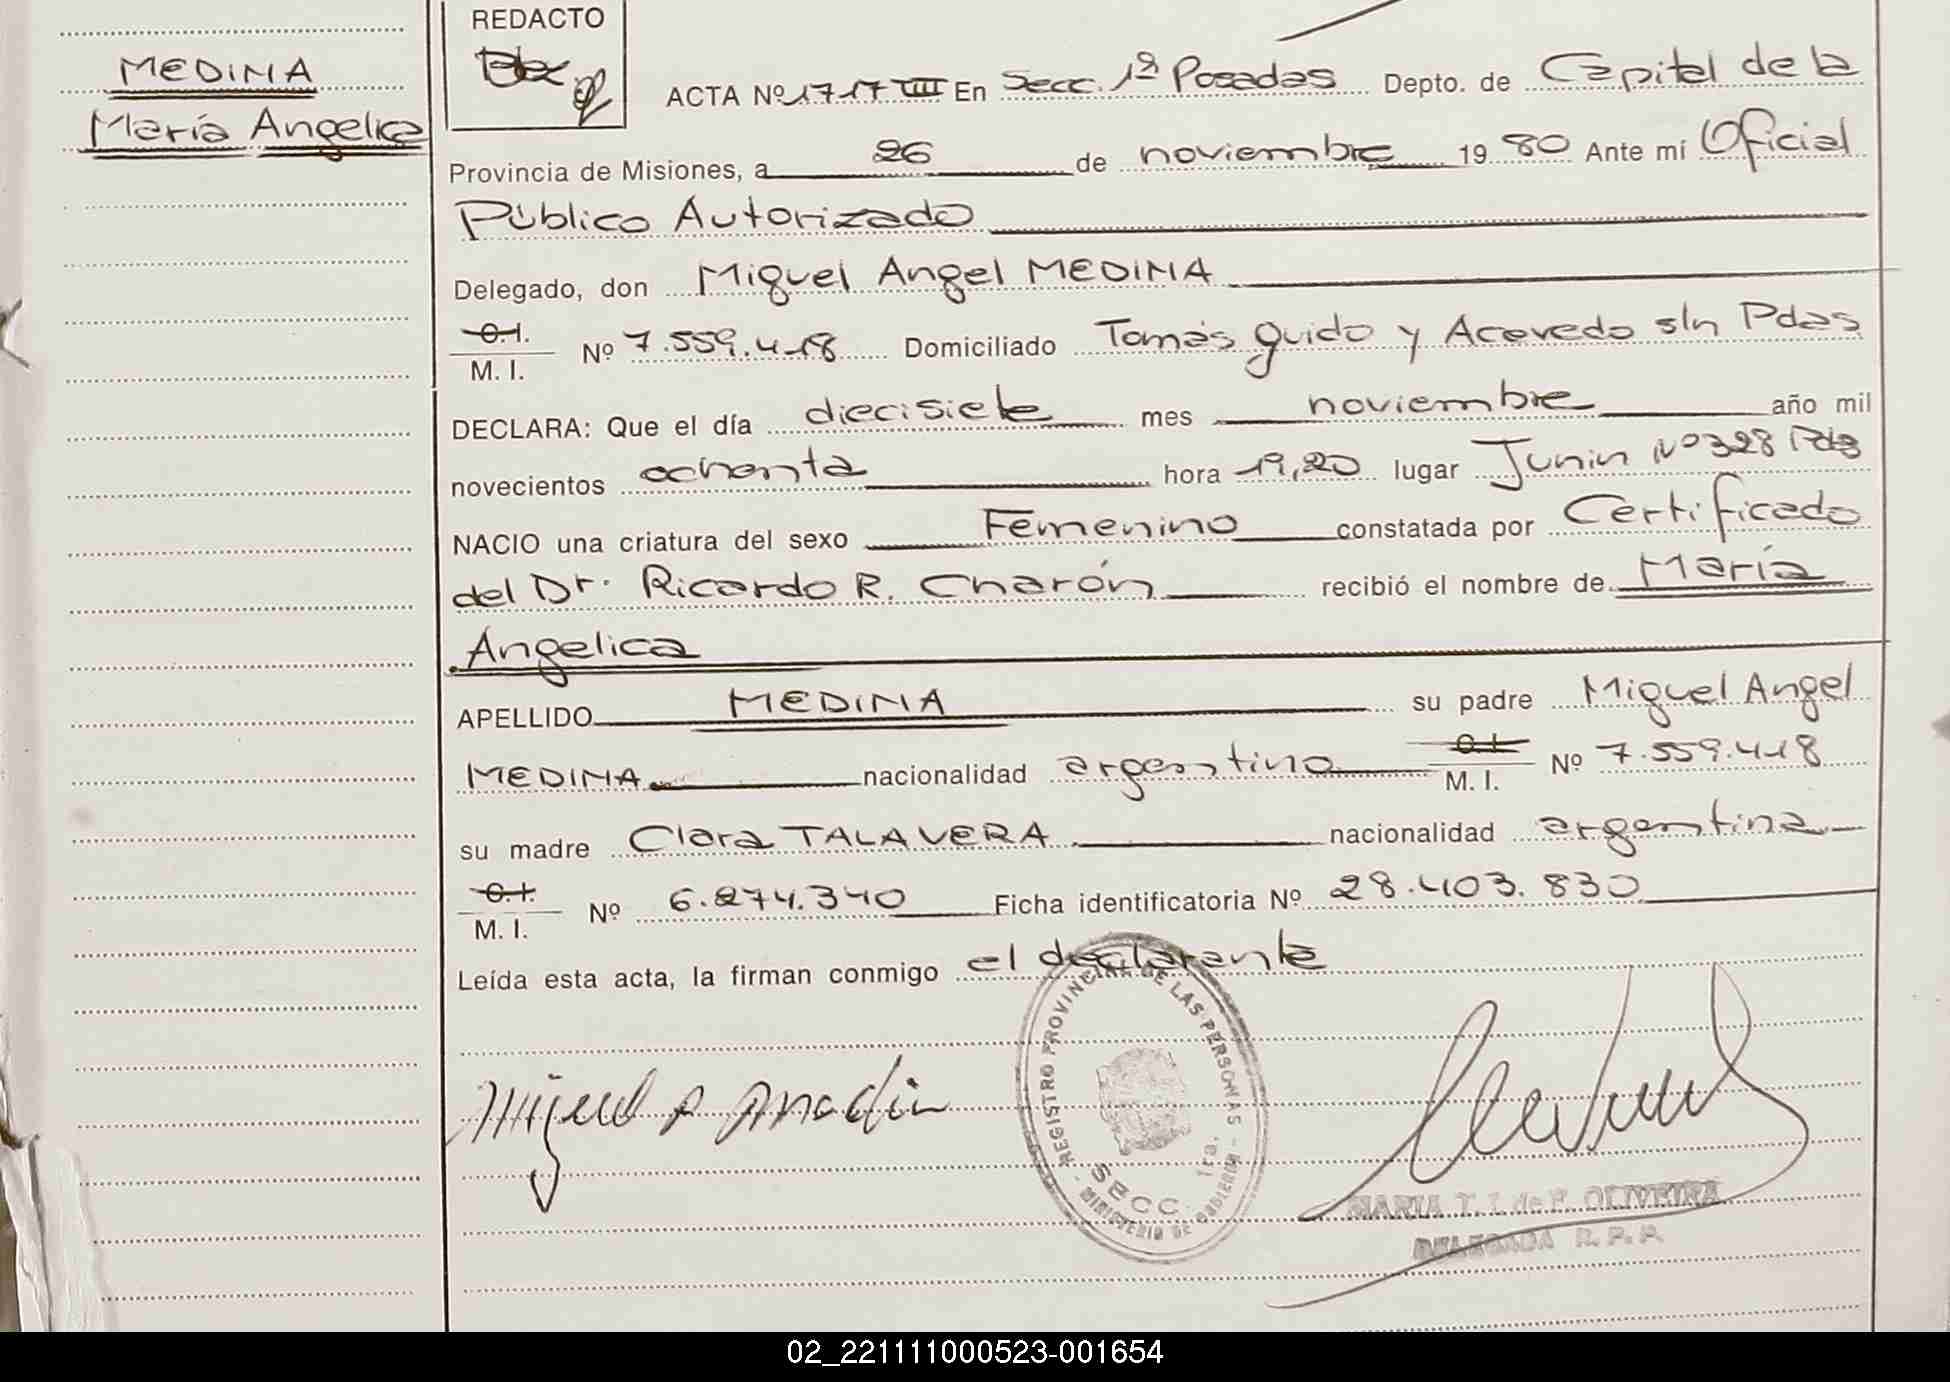 REDACTO
MEDINA
María Angelica
ACTA Nº 1717 VIII En Secc. 1ª Posadas Depto. de Capital de la
Provincia de Misiones, a 26 de noviembre 1980 Ante mí Oficial
Público Autorizado
Delegado, don Miguel Angel MEDINA
C.I.
M. I. Nº 7.559.418 Domiciliado Tomás guido y Acevedo s/n Pdas
DECLARA: Que el día diecisiete mes noviembre año mil
novecientos ochenta hora 19,20 lugar Junin Nº 328 Pdas
NACIO una criatura del sexo Femenino constatada por Certificado
del Dr. Ricardo R. Charón recibió el nombre de María
Angelica
APELLIDO MEDINA su padre Miguel Angel
MEDINA nacionalidad argentino C.I. M. I. Nº 7.559.418
su madre Clara TALAVERA nacionalidad argentina
C.I.
M. I. Nº 6.274.340 Ficha identificatoria Nº 28.403.830
Leída esta acta, la firman conmigo el declarante
REGISTRO PROVINCIAL DE LAS PERSONAS
SECC. 1ra.
MINISTERIO DE GOBIERNO
Miguel A Medin
MARIA T. I. de F. OLIVEIRA
DELEGADA R. P. P.
02_221111000523-001654